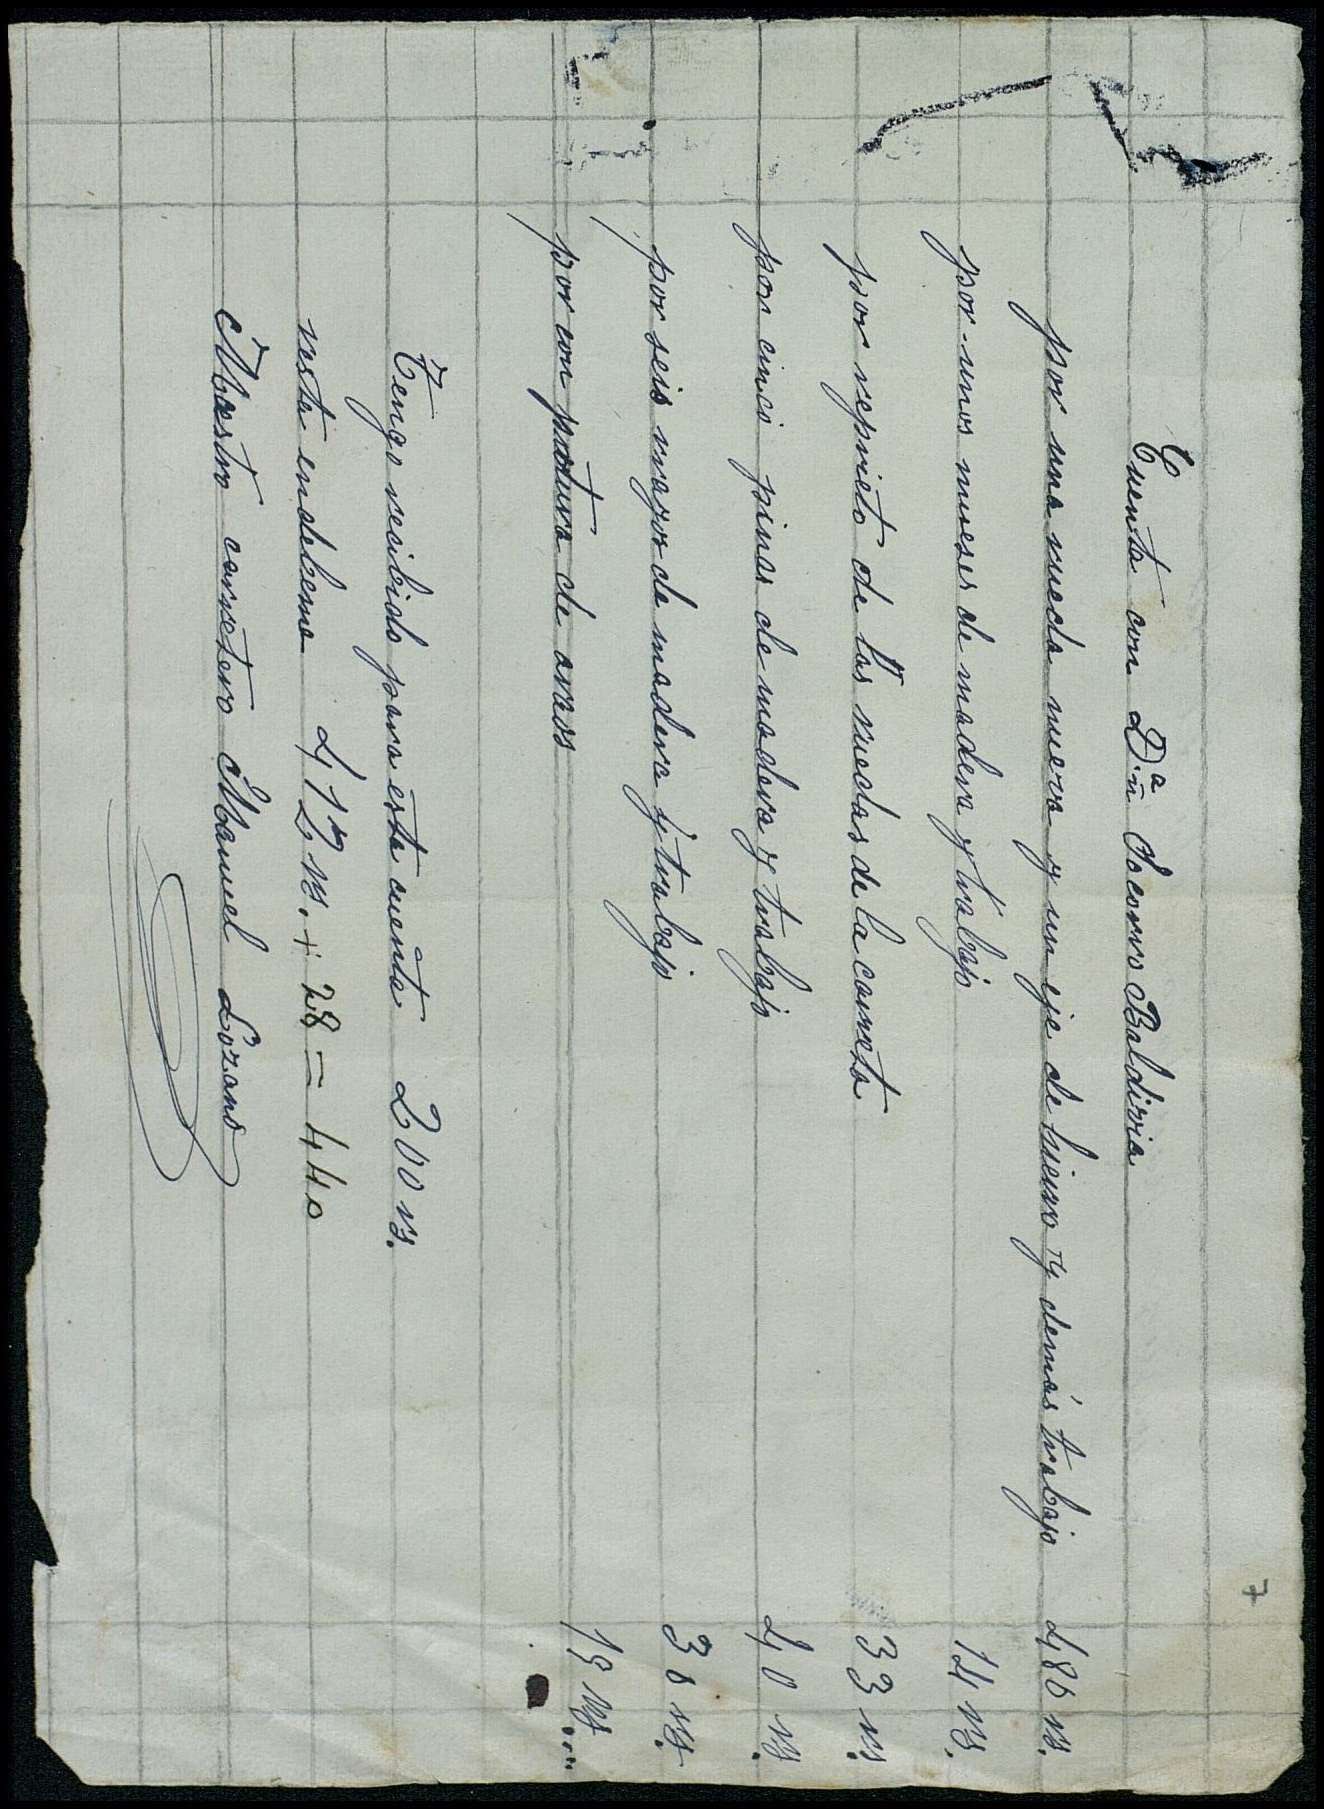 7
Cuenta con D.ñª Socorro Baldivia
por una rueda nueva y un eje de hierro y demás trabajo 480 rs.
por unos mueses de madera y trabajo 14 rs.
por reprieto de las ruedas de la carreta 33 rs.
por cinco pinas de madera y trabajo 40 rs.
por seis rrayos de madera y trabajo 30 rs.
por conpotura de aros 15 rs...
Tengo recibido para esta cuenta 200 rs.
resta en debeme 412 rs. + 28 = 440
Maestro carretero Manuel Lozano